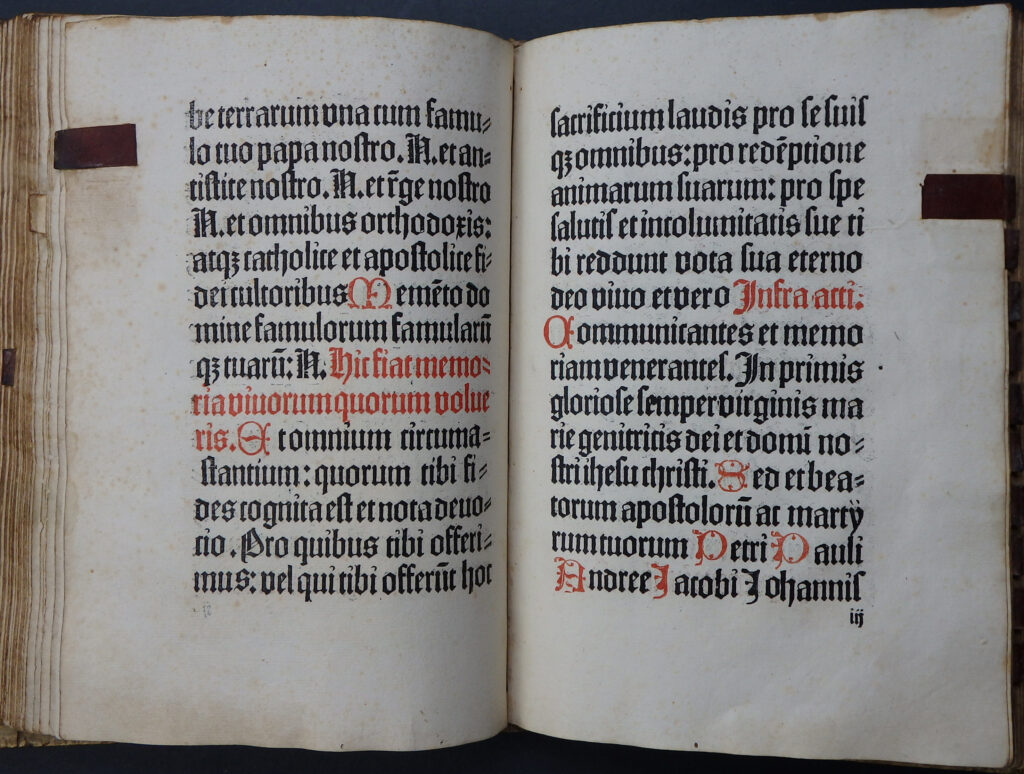 be terrarum vna cum famu⸗
lo tuo papa nostro. N. et an⸗
tistite nostro. N. et r̄ge nostro
N. et omnibus orthodoxis:
atqꝫ catholice et apostolice fi⸗
dei cultoribus Memēto do
mine famulorum famularū
qꝫ tuarū: N. Hic fiat memo⸗
ria viuorum quorum volue
ris. Et omnium circuma⸗
stantium: quorum tibi fi⸗
des cognita est et nota deuo⸗
cio. Pro quibus tibi offeri⸗
mus: vel qui tibi offerūt hoc
sacrificium laudis pro se suis
qꝫ omnibus: pro redēptione
animarum suarum: pro spe
salutis et incolumitatis sue ti
bi reddunt vota sua eterno
deo viuo et vero Infra acti.
Communicantes et memo
riam venerantes. In primis
gloriose semper virginis ma
rie genitricis dei et domī no⸗
stri ihesu christi. Sed et bea⸗
torum apostolorū ac martÿ
rum tuorum Petri Pauli
Andree Jacobi Johannis
iij